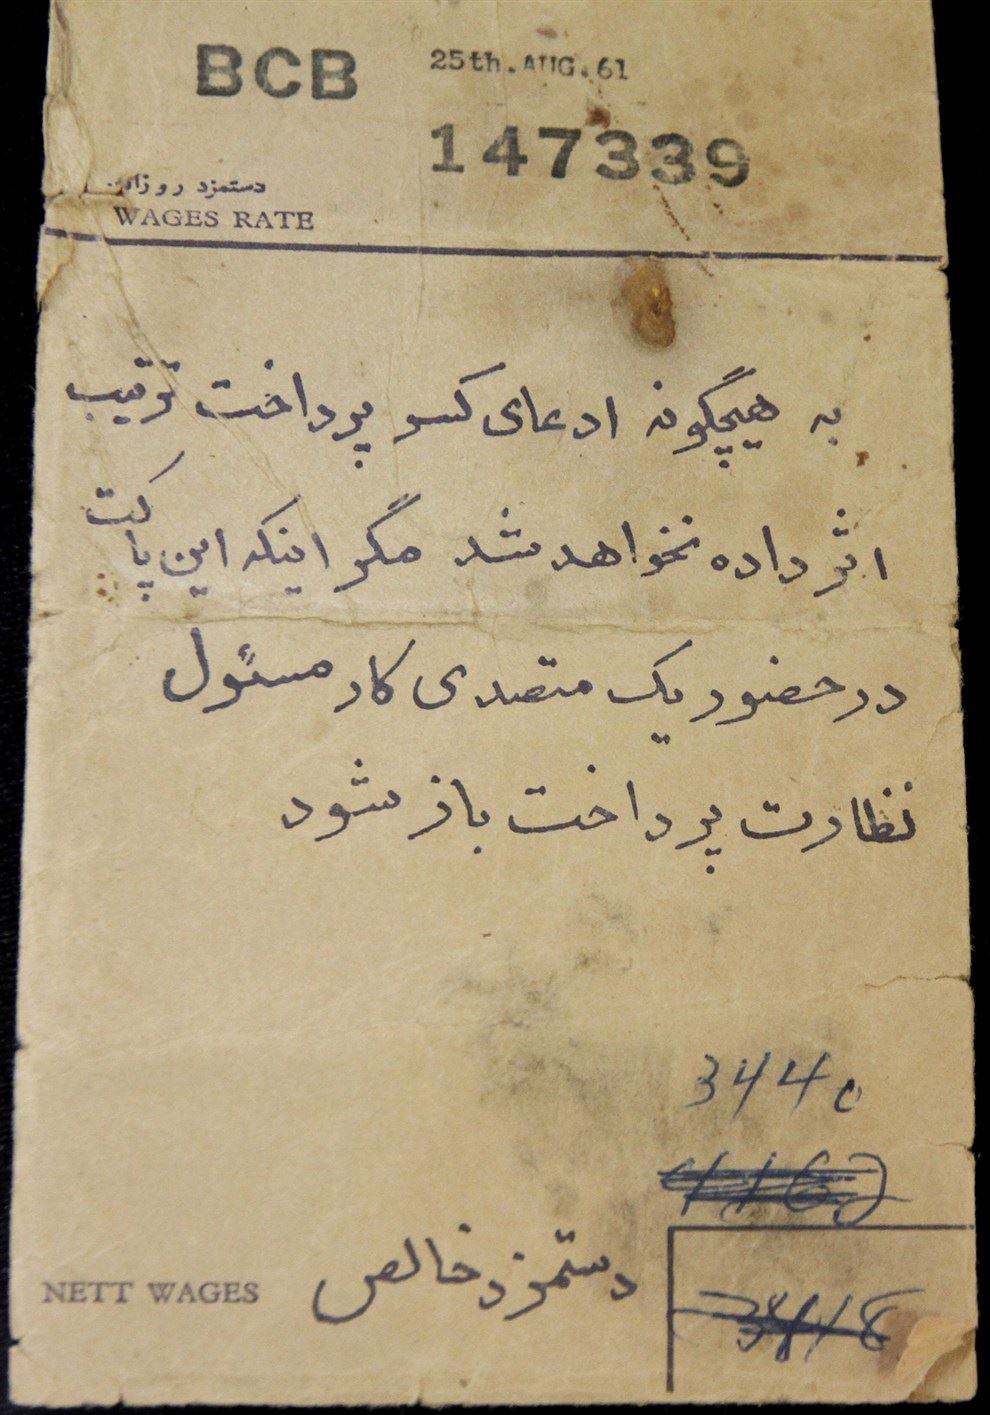 BCB 25th.AUG.61
147339
دستمزد روزانه
WAGES RATE
به هیچگونه ادعای کسر پرداخت ترتیب
اثر داده نخواهد شد مگر اینکه این پاکت
در حضور یک متصدی کار مسئول
نظارت پرداخت باز شود
3440
NETT WAGES دستمزد خالص